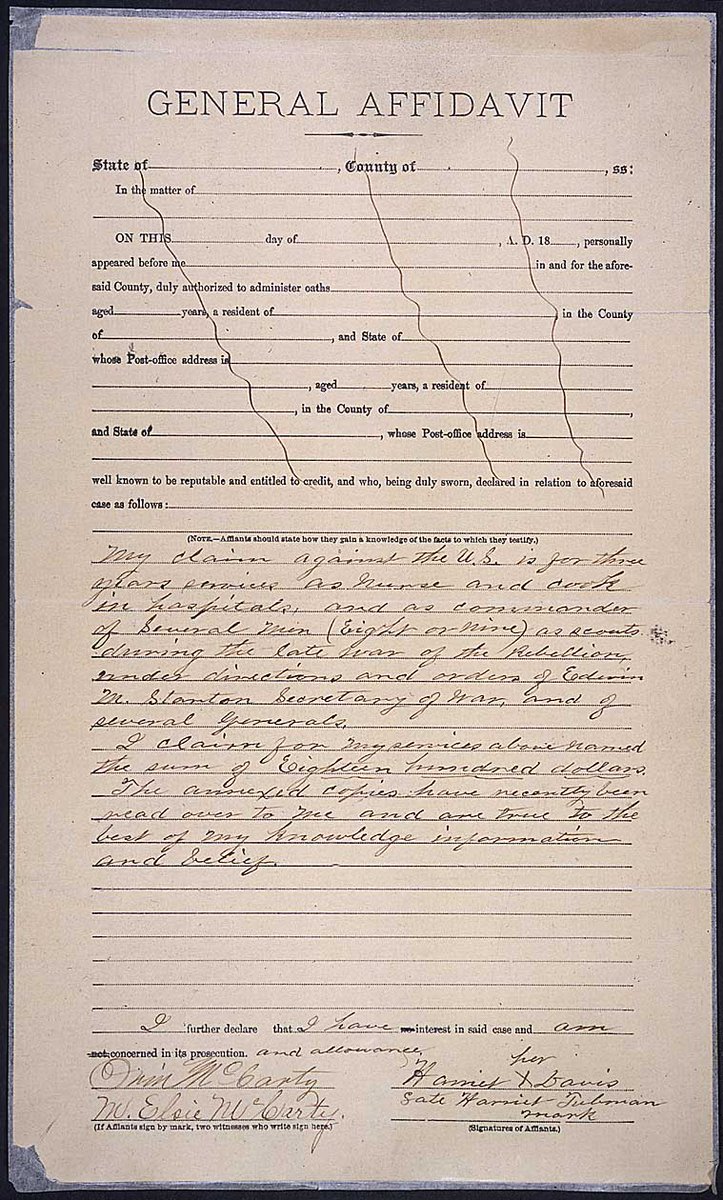 GENERAL AFFIDAVIT
State of , County of , ss:
In the matter of
ON THIS day of , A. D. 18 , personally
appeared before me in and for the afore-
said County, duly authorized to administer oaths
aged years, a resident of in the County
of , and State of
whose Post-office address is
, aged years, a resident of
, in the County of ,
and State of , whose Post-office address is
well known to be reputable and entitled to credit, and who, being duly sworn, declared in relation to aforesaid
case as follows:
(NOTE.—Affiants should state how they gain a knowledge of the facts to which they testify.)
My claim against the U.S. is for three
years services as Nurse and cook
in hospitals, and as commander
of Several Men (Eight or Nine) as scouts
during the late War of the Rebellion,
under directions and orders of Edwin
M. Stanton Secretary of War, and of
several Generals.
I claim for my services above named
the sum of Eighteen hundred dollars.
The annexed copies have recently been
read over to me and are true to the
best of my knowledge information
and belief.
I further declare that I have no interest in said case and am
not concerned in its prosecution. and allowance
Orin McCarty
W. Elsie McCarty.
(If Affiants sign by mark, two witnesses who write sign here.)
her
Harriet X Davis
Late Harriet Tubman
mark
(Signatures of Affiants.)